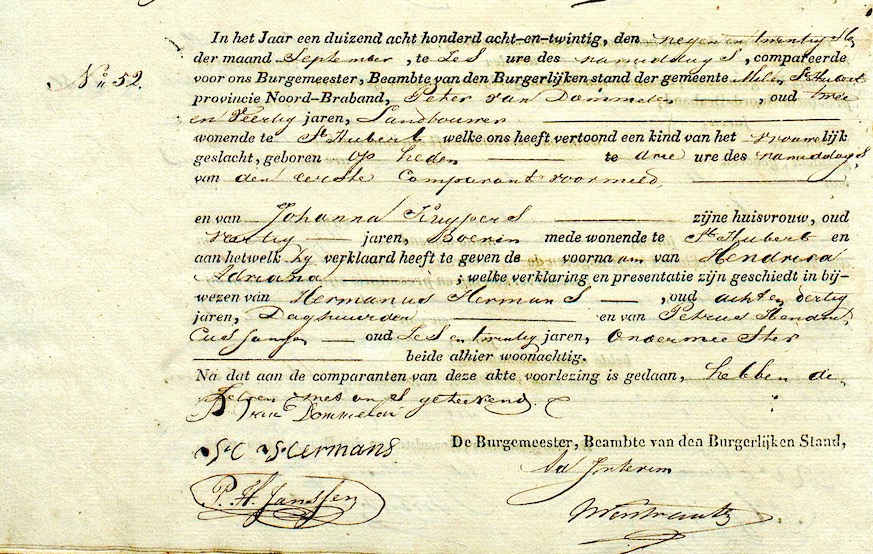 In het Jaar een duizend acht honderd acht-en-twintig, den negen en twintig Sten
der maand September, te zeS ure des namiddagS, compareerde
No 52.
voor ons Burgemeester, Beambte van den Burgerlijken stand der gemeente Mill en St Hubert
provincie Noord-Braband, Peter van Dommelen, oud twee
en Veertig jaren, Landbouwer
wonende te St Hubert welke ons heeft vertoond een kind van het vrouwelijk
geslacht, geboren op heden te drie ure des namiddagS
van den eerste Comparant voormeld,
en van Johanna KuyperS zijne huisvrouw, oud
veertig jaren, Boerin mede wonende te St Hubert en
aan hetwelk hy verklaard heeft te geven de voornaam van Hendrica
Adriana ; welke verklaring en presentatie zijn geschiedt in bij-
wezen van Hermanus HermanS, oud acht en dertig
jaren, Daghuurder en van Petrus Hendri
Cus Jansen oud zeS en twintig jaren, Ondermeester
beide alhier woonachtig.
Na dat aan de comparanten van deze akte voorlezing is gedaan, hebben de
zelven met onS geteekend.
P van Dommelen
Hermans
De Burgemeester, Beambte van den Burgerlijken Stand,
Ad Interim
P. H. Janssen